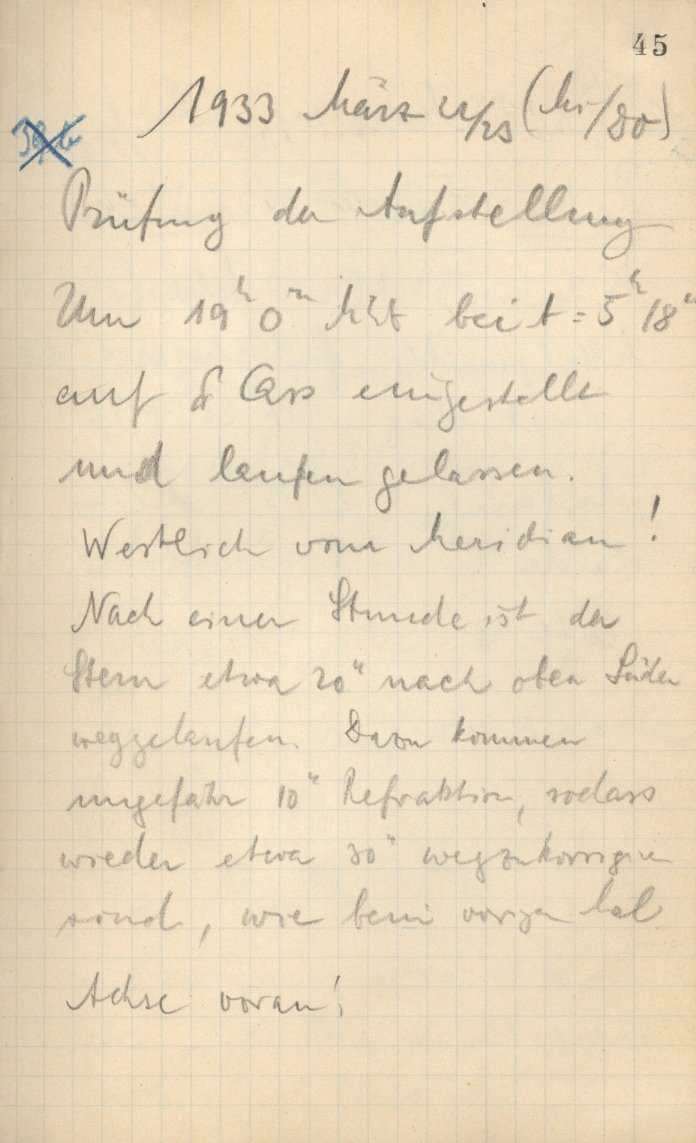 45
1933 März 22/23 (Mi/Do)
Prüfung der Aufstellung
Um 19h 0m MEZ bei t = 5h 18m
auf δ Cass eingestellt
und laufen gelassen.
Westlich vom Meridian!
Nach einer Stunde ist der
Stern etwa 20" nach oben Süden
weggelaufen. Davon kommen
ungefähr 10" Refraktion, sodass
wieder etwa 30" wegzukorrigieren
sind, wie beim vorigen Mal
Achse voran!